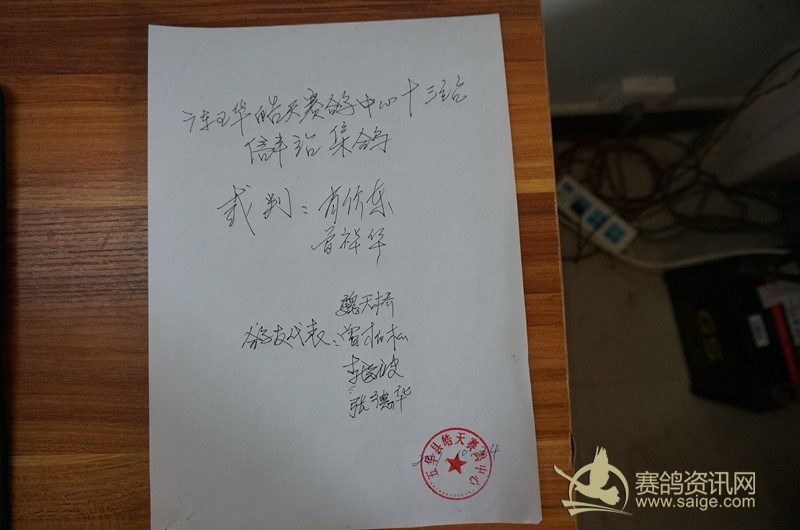 广东五华皓天赛鸽中心十三站
信丰站 集鸽
裁判：肖伟东
曾祥华
魏天桥
鸽友代表：曾柏松
李波
张德华
五华县皓天赛鸽中心
赛鸽资讯网
www.saige.com